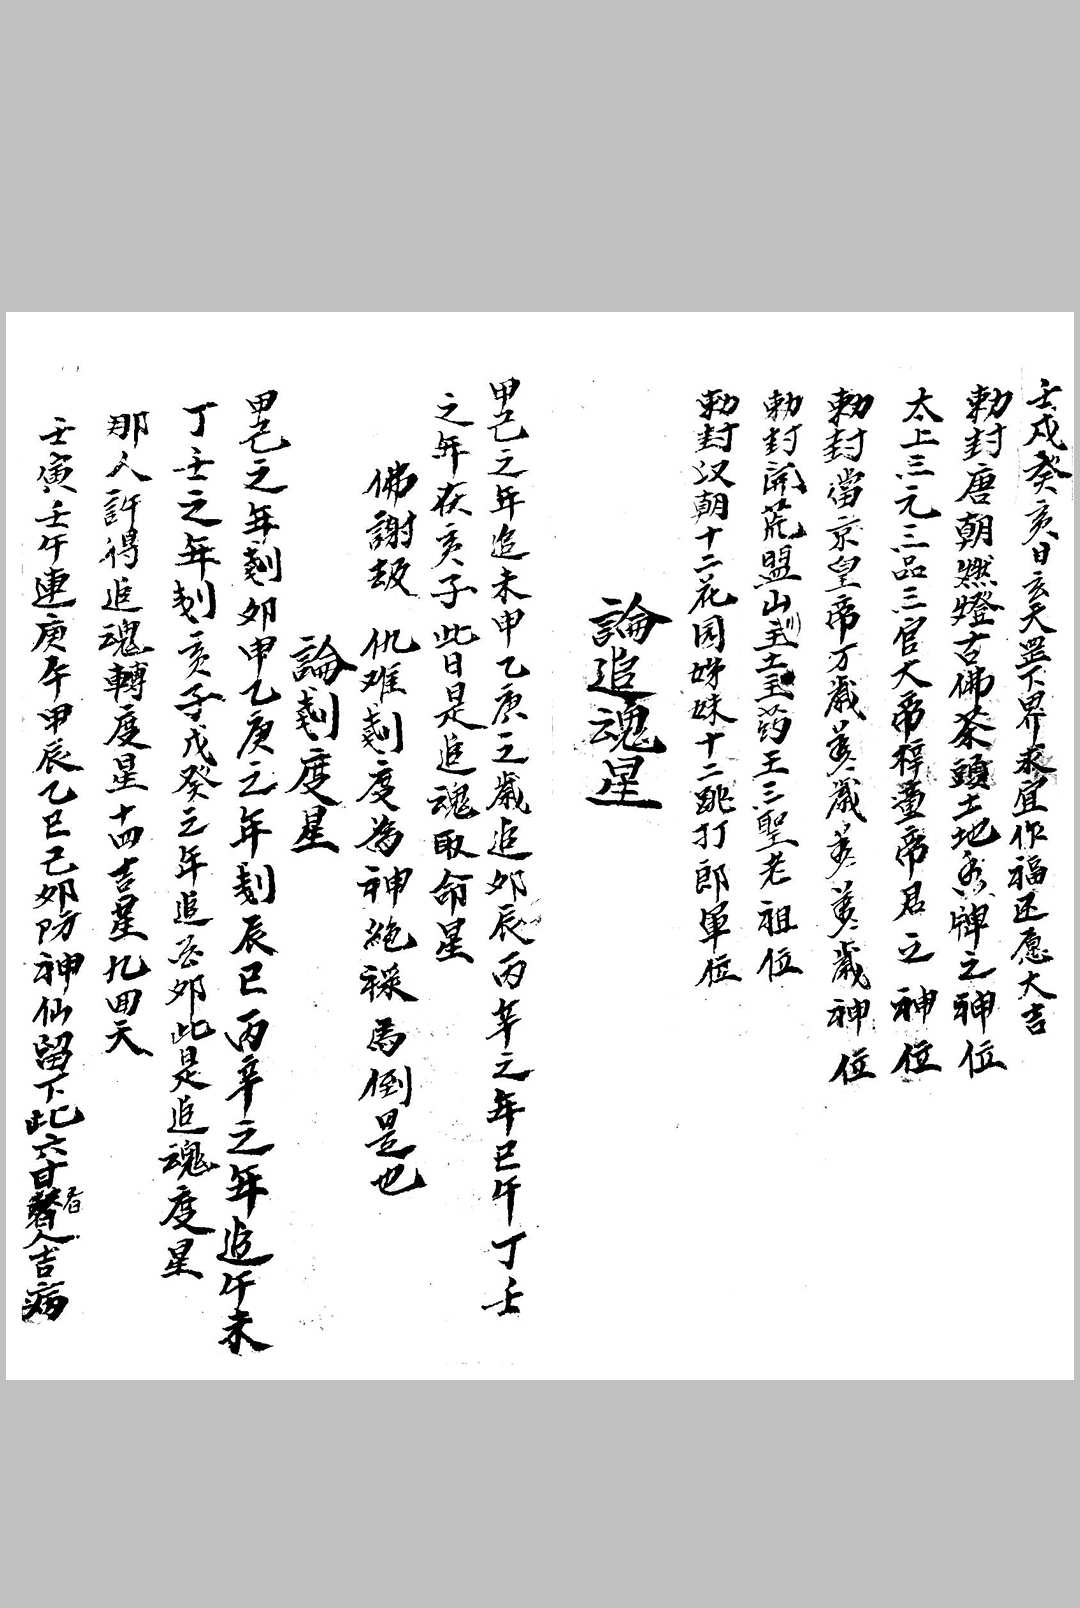 壬戌癸亥日玄天罡下界求宜作福还愿大吉
勅封唐朝燃燈古佛茶頭土地牌之神位
太上三元三品三官大帝梓童帝君之神位
勅封當京皇帝万歲萬歲萬萬歲神位
勅封開荒盟山药王三聖老祖位
勅封汉朝十二花园姊妹十二跳打郎軍位
論追魂星
甲己之年追未申乙庚之歲追夘辰丙辛之年巳午丁壬
之年在亥子此日是追魂取命星
佛謝 仇难刬度為神絶禄馬倒是也
論刬度星
甲己之年刬夘申乙庚之年刬辰巳丙辛之年追午未
丁壬之年刬亥子戊癸之年追夘此是追魂度星
那人許得追魂轉度星十四吉星九回天
壬寅壬午連庚午甲辰乙巳己夘防神仙留下此六日看人吉病